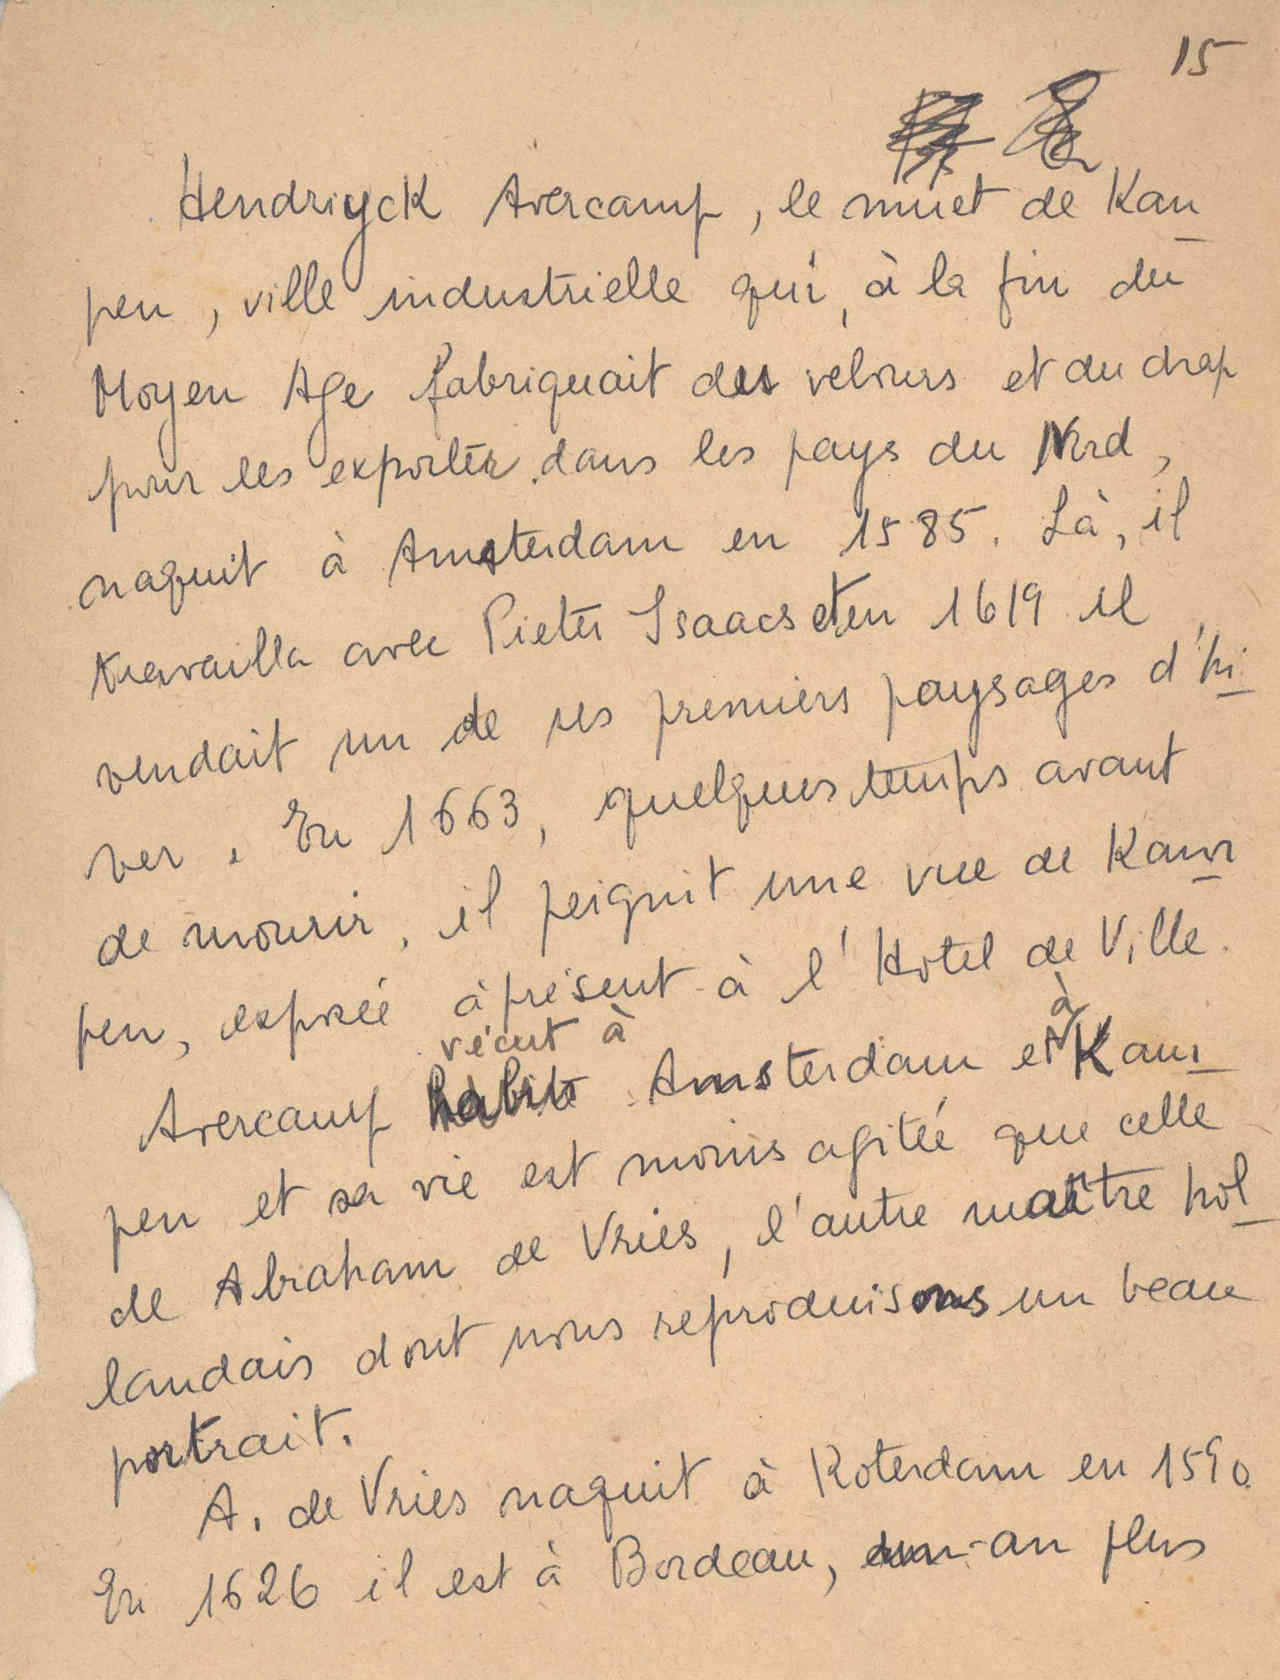 15
Hendriyck Avercamp, le muet de Kam
pen, ville industrielle qui, à la fin du
Moyen Age fabriquait des velours et du drap
pour les exporter dans les pays du Nord,
naquit à Amsterdam en 1585. Là, il
travailla avec Pieter Isaacs et en 1619 il
vendait un de ses premiers paysages d'hi
ver. En 1663, quelques temps avant
de mourir, il peignit une vue de Kam
pen, exposée à présent à l'Hotel de Ville.
vécut à à
Avercamp Amsterdam et Kam
pen et sa vie est moins agitée que celle
de Abraham de Vries, l'autre maître hol
landais dont nous reproduisons un beau
portrait.
A. de Vries naquit à Roterdam en 1590.
En 1626 il est à Bordeau, un an plus